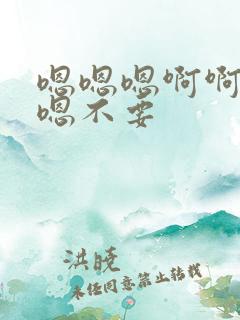 嗯嗯嗯啊啊
嗯不要
洪晓
未经同意禁止转载